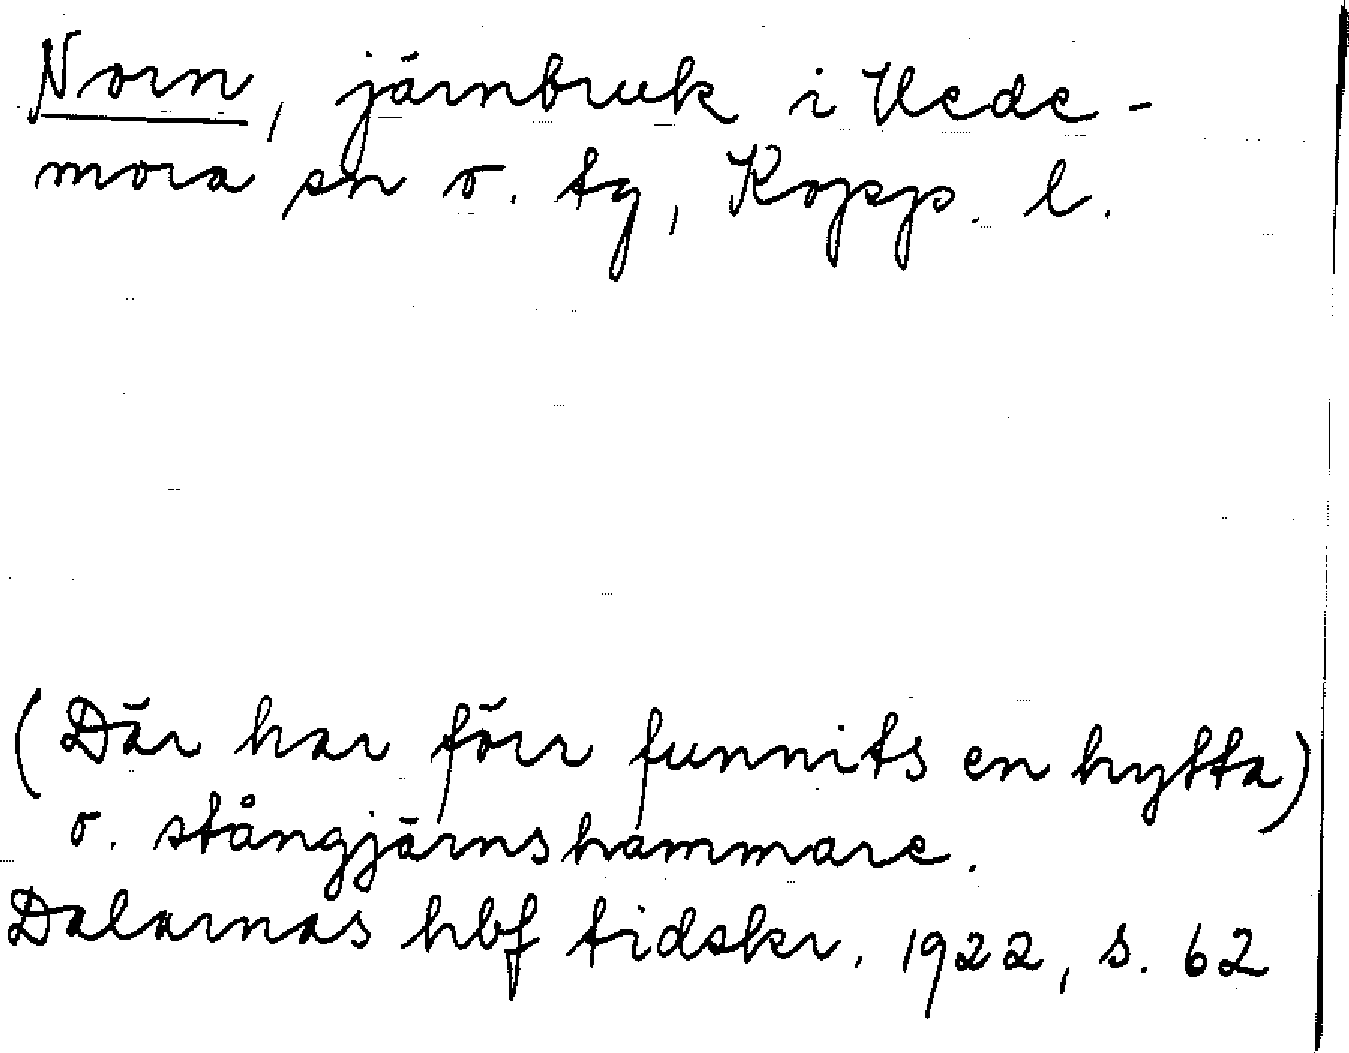 Norn, järnbruk i Vede-
mora sn o. tg, Kopp. l.
(Där har förr funnits en hytta)
o. stångjärnshammare.
Dalarnas hbf tidskr. 1922, s. 62